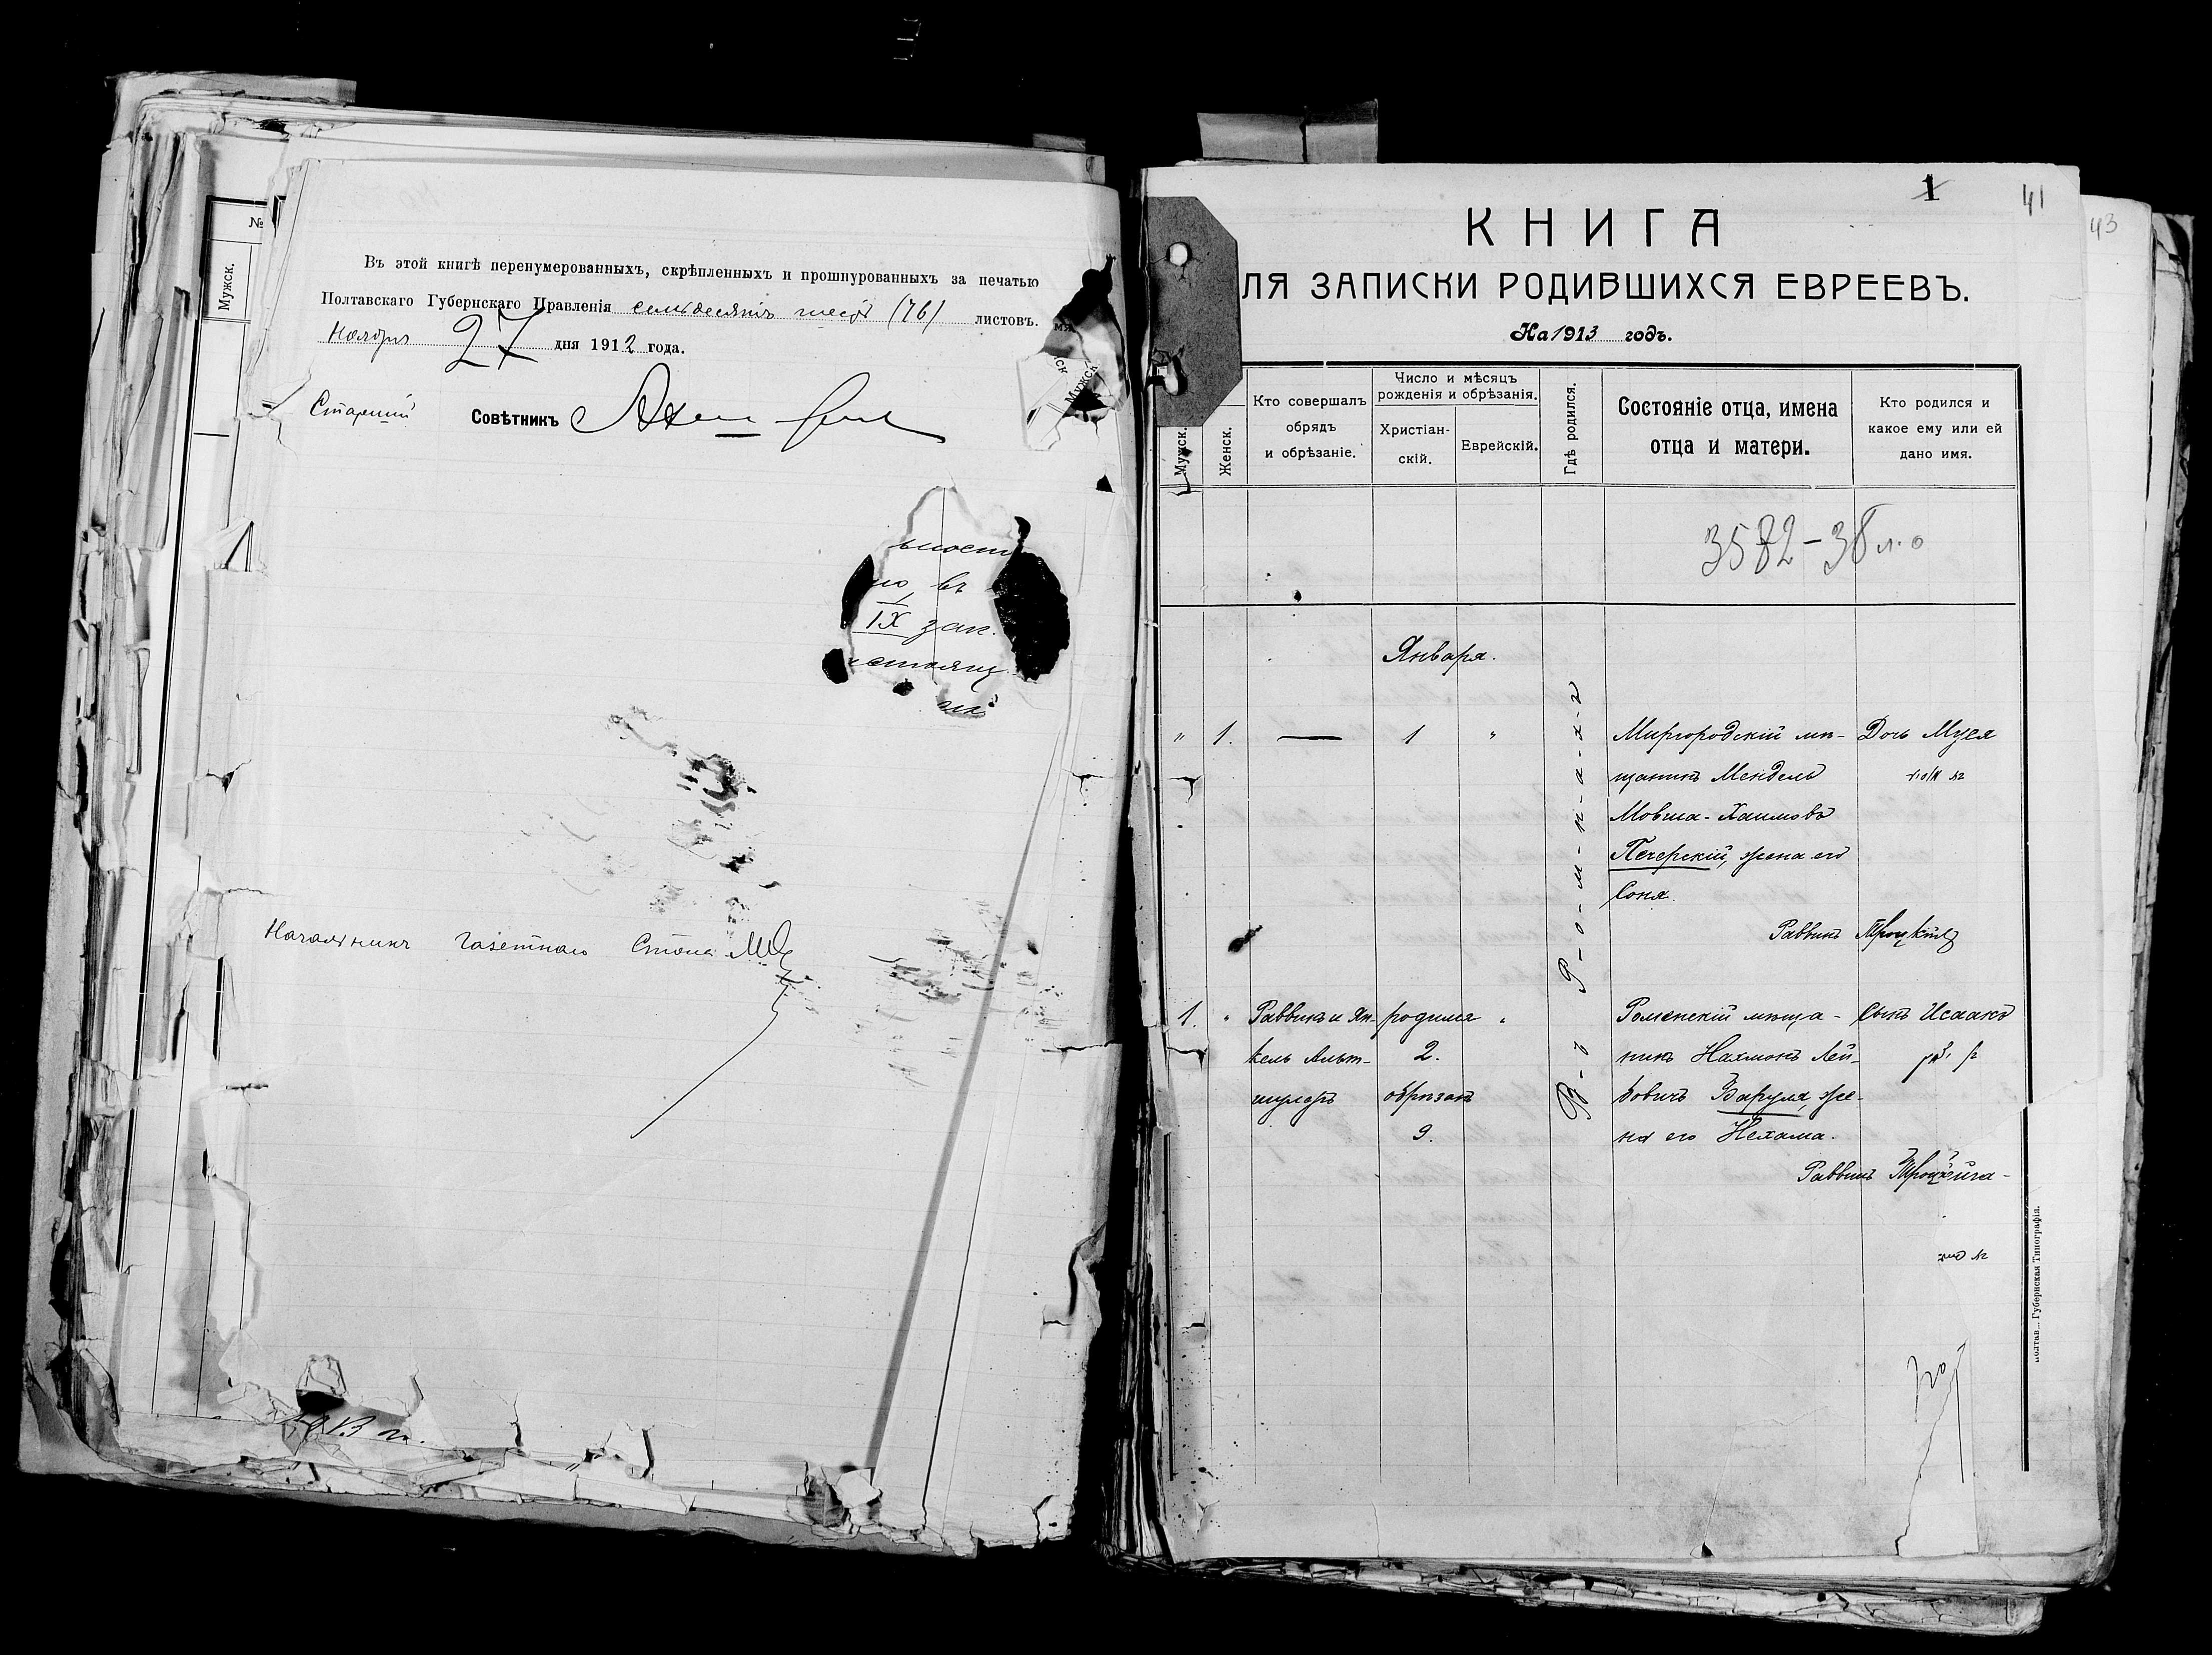 №
Мужск.
Въ этой книгѣ перенумерованныхъ, скрѣпленныхъ и прошнурованныхъ за печатью
Полтавскаго Губернскаго Правленія семьдесятъ шесть (76) листовъ.
Ноября 27 дня 1912 года.
Старшій Совѣтникъ
но въ
IX зак.
Начальникъ Газетнаго Стола
1
41
43
КНИГА
ЛЯ ЗАПИСКИ РОДИВШИХСЯ ЕВРЕЕВЪ.
На 1913 годъ.
Мужск.
Женск.
Кто совершалъ
обрядъ
и обрѣзаніе.
Число и мѣсяцъ
рожденія и обрѣзанія.
Христіан-
скій.
Еврейскій.
Гдѣ родился.
Состояніе отца, имена
отца и матери.
Кто родился и
какое ему или ей
дано имя.
Января.
В-ъ Р-о-м-н-а-х-ъ
" 1. — 1 " Миргородскій мѣ- Дочь Муся
щанинъ Мендель
Мовша-Хаимовъ
Печерскій, жена его
Соня.
Раввинъ
1. " Раввинъ и Ян- родился " Роменскій мѣща- Сынъ Исаакъ
кель Альт- 2. никъ Нахманъ Лей-
шулеръ обрѣзанъ бовичъ Варуля, же-
9. на его Нехама.
Раввинъ
Губернская Типографія.